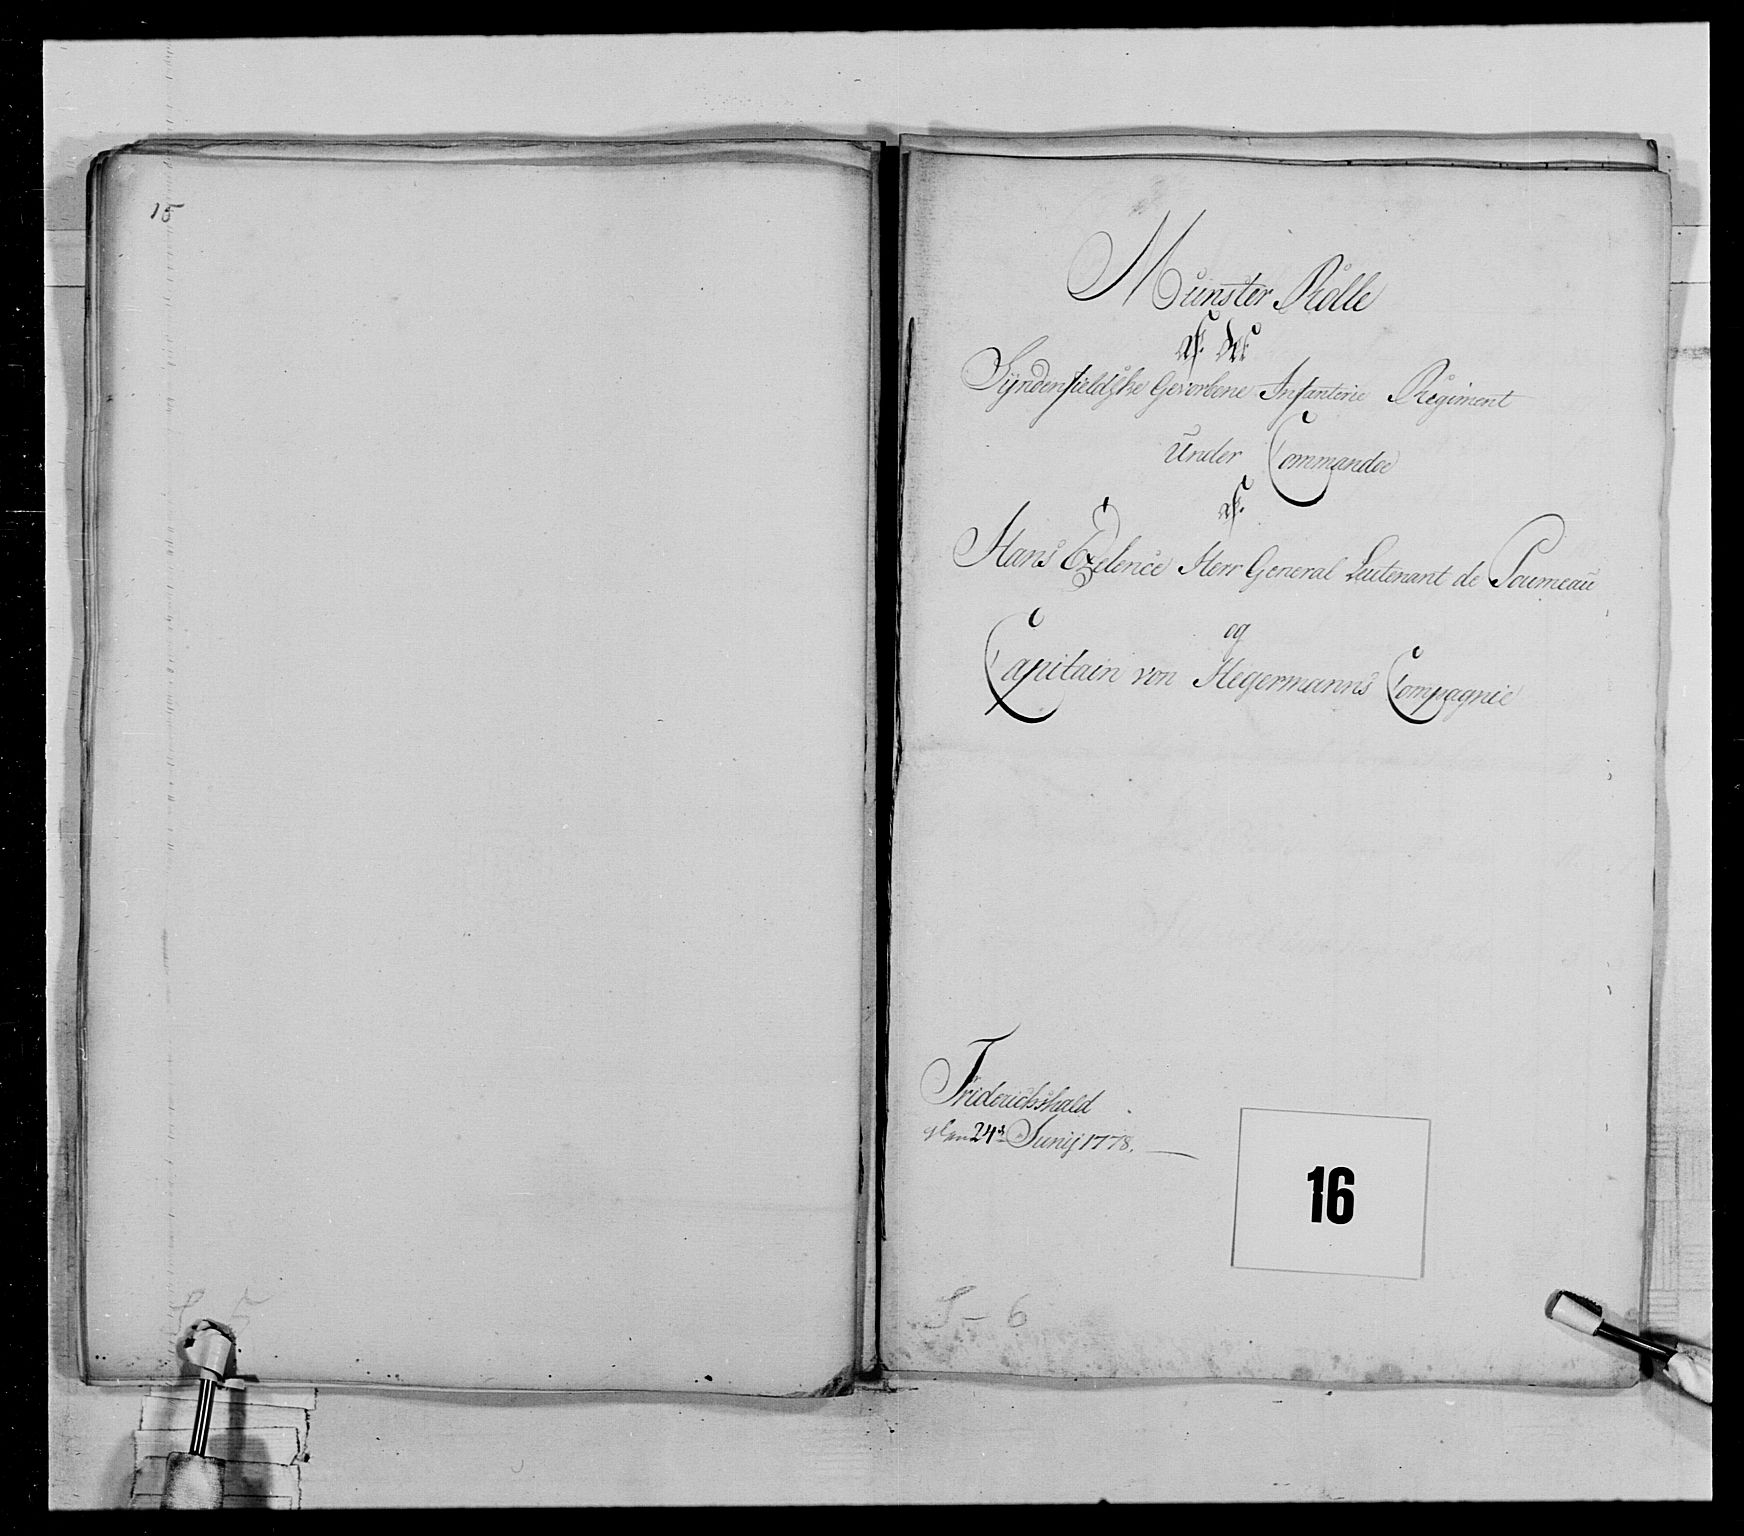 15
S 5
Münster Rolle
af det
Syndenfieldske Gevorbene Infanterie Regiment
Under Commandoe
af
Hans Exelence Herr General Leutenant de Poumeaü
og
Capitain von Hegermanns Compagnie
Friderichshald
den 24de Junij 1778.
16
S-6